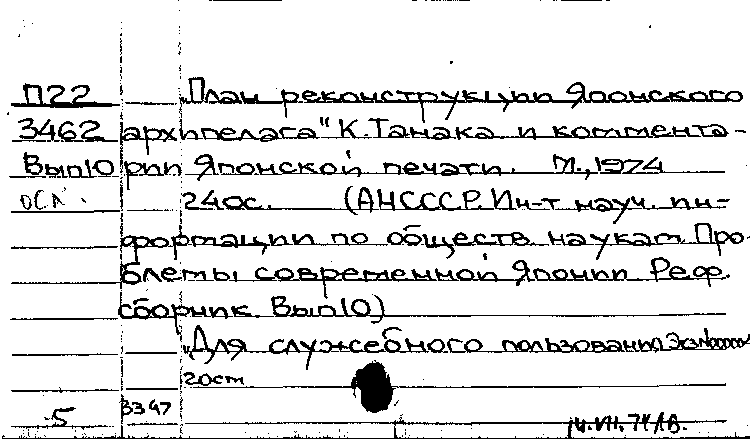 П22 „План реконструкции Японского
3462 архипелага" К. Танака и коммента-
Вып10 рии Японской печати. М., 1974
240с. (АНСССР. Ин-т науч. ин-
формации по обществ наукам. Про-
блемы современной Японии Реф.
сборник. Вып10)
„Для служебного пользования
5 3347